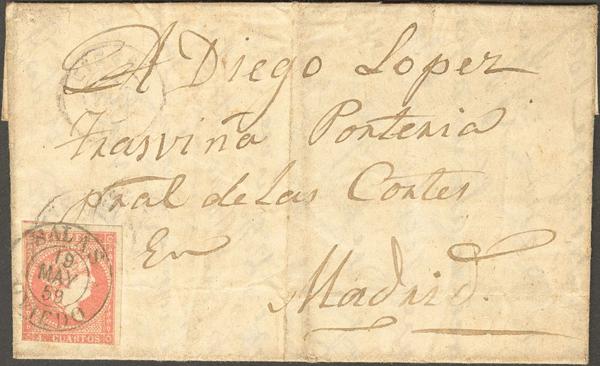 A Diego Lopez
Trasviña Porteria
pral de las Cortes
En
Madrid.
SALAS
19
MAY
59
OVIEDO
4 CUARTOS